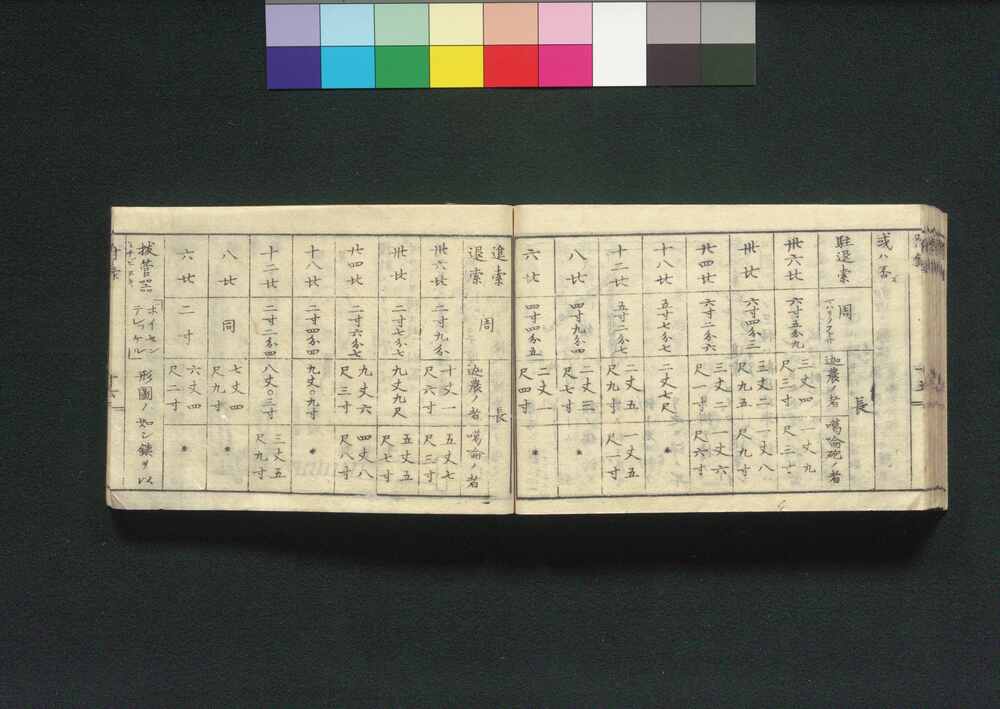 或ハ否
駐退索 周 長 迦農ノ者 噶崙砲ノ者
卅六听 六寸五分九 三丈四尺三寸 一丈九尺三寸
卅听 六寸四分三 三丈二尺九五 一丈八尺九寸
廿四听 六寸二分六 三丈二尺一寸 一丈六尺六寸
十八听 五寸七分七 二丈七尺 一丈五
十二听 五寸二分七 二丈五尺九寸 一丈五尺一寸
八听 四寸九分四 二丈三尺七寸
六听 四寸四分五 二丈一尺四寸
進索 退索 周 長 迦農ノ者 噶崙ノ者
卅六听 二寸九分 十丈一尺六寸 五丈七尺三寸
卅听 二寸七分七 九丈九尺 五丈五尺七寸
廿四听 二寸六分七 九丈六尺三寸 四丈八尺八寸
十八听 二寸四分四 九丈〇九寸
十二听 二寸二分四 八丈〇三寸 三丈五尺九寸
八听 同 七丈四尺九寸
六听 二寸 六丈四尺二寸
拔管器 「ホイセンテレッケル」 形圖ノ如シ鐵ヲ以